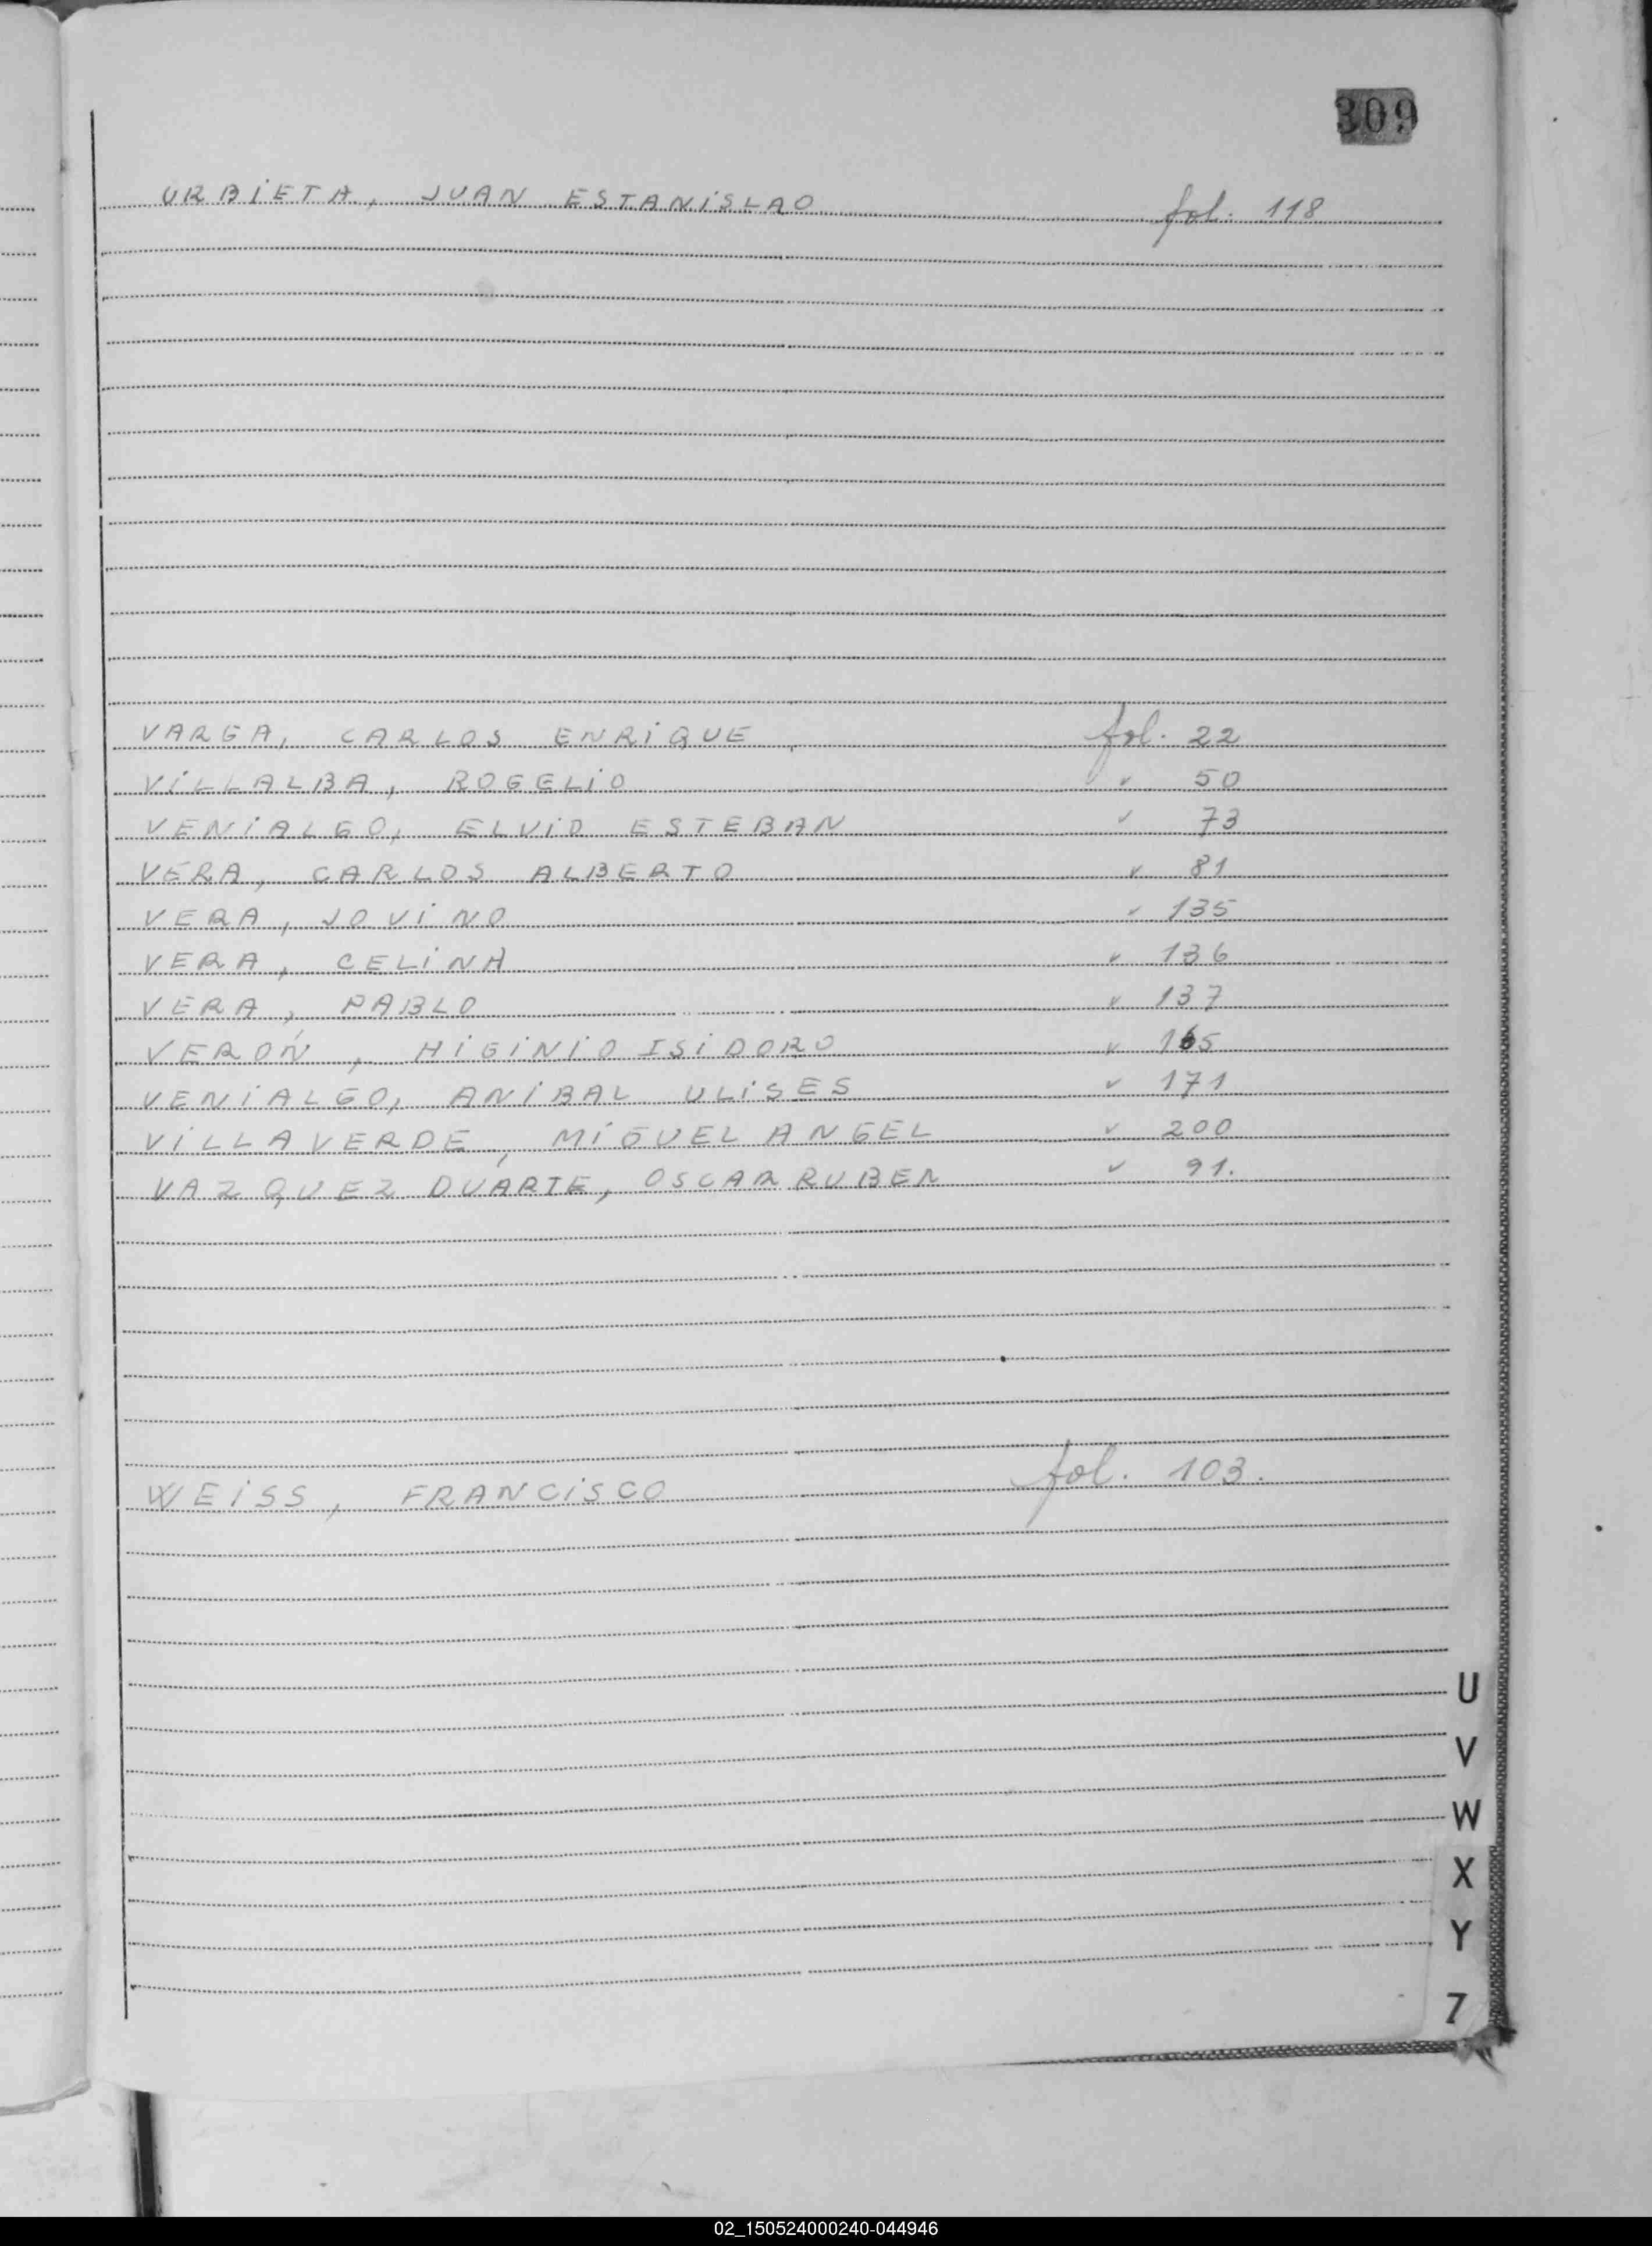 309
URBiETA, JUAN ESTANiSLAO fol. 118
VARGA, CARLOS ENRiQUE fol. 22
ViLLALBA, ROGELiO " 50
VENiALGO, ELViO ESTEBAN " 73
VERA, CARLOS ALBERTO " 81
VERA, JOViNO " 135
VERA, CELiNA " 136
VERA, PABLO " 137
VERÓN, HiGiNiO ISiDORO " 165
VENiALGO, ANiBAL ULiSES " 171
ViLLAVERDE, MiGUEL ANGEL " 200
VAZQUEZ DUARTE, OSCAR RUBEN " 91.
WEiSS, FRANCiSCO fol. 103.
U
V
W
X
Y
Z
02_150524000240-044946